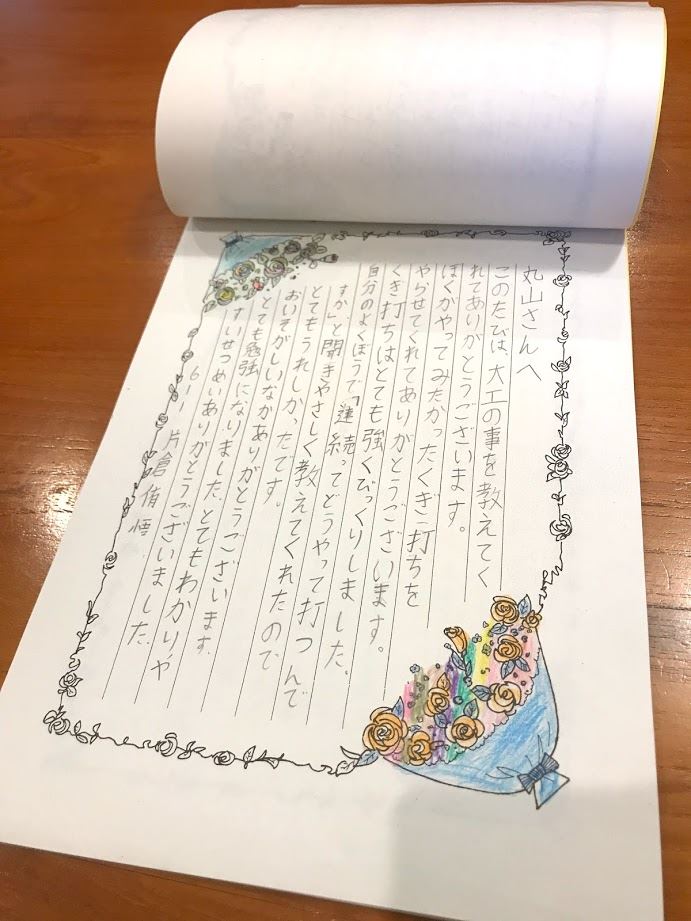 丸山さんへ
このたびは、大工の事を教えてく
れてありがとうございます。
ぼくがやってみたかったくぎ打ちを
やらせてくれてありがとうございます。
くぎ打ちはとても強くびっくりしました。
自分のよくぼうで「連続ってどうやって打つんで
すか」と聞きやさしく教えてくれたので
とてもうれしかたです。
おいそがしいなかありがとうございます。
とても勉強になりました。とてもわかりや
すいせつめいありがとうございました。
6-1 片倉脩悟